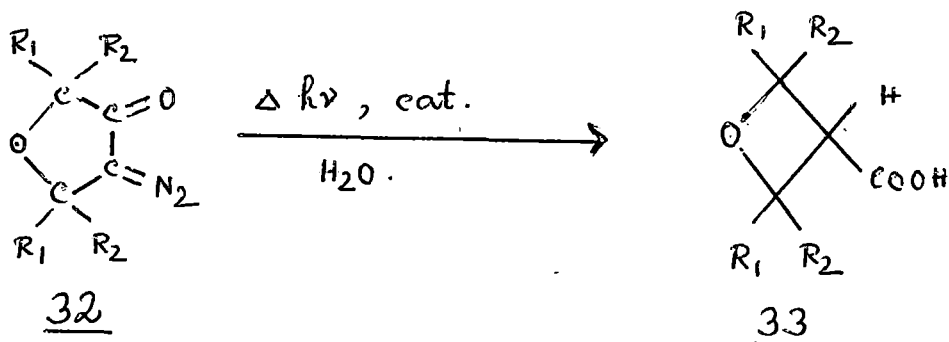 R1 R2
C C=O
O
C C=N2
R1 R2
32
Δ hν, cat.
H2O.
R1 R2
O H
COOH
R1 R2
33